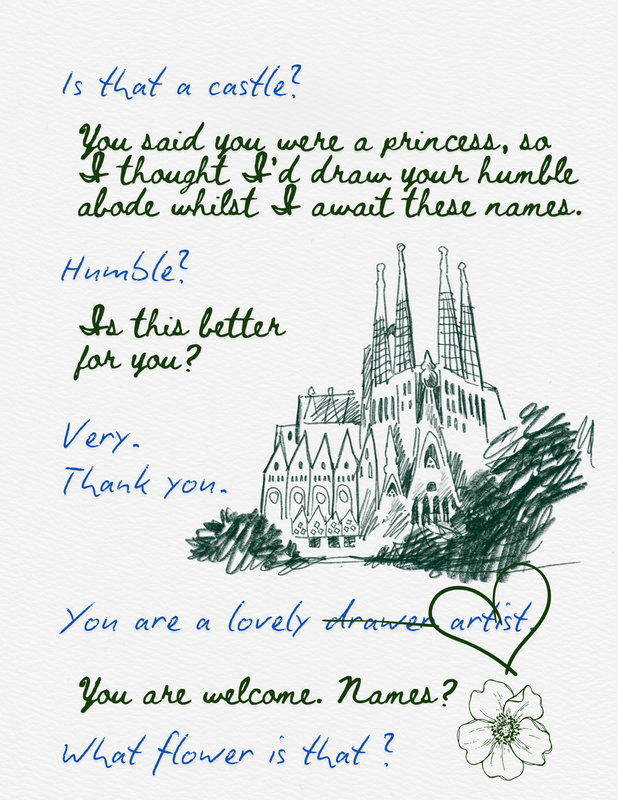 Is that a castle?
You said you were a princess, so
I thought I'd draw your humble
abode whilst I await these names.
Humble?
Is this better
for you?
Very.
Thank you.
You are a lovely drawer artist.
You are welcome. Names?
What flower is that?